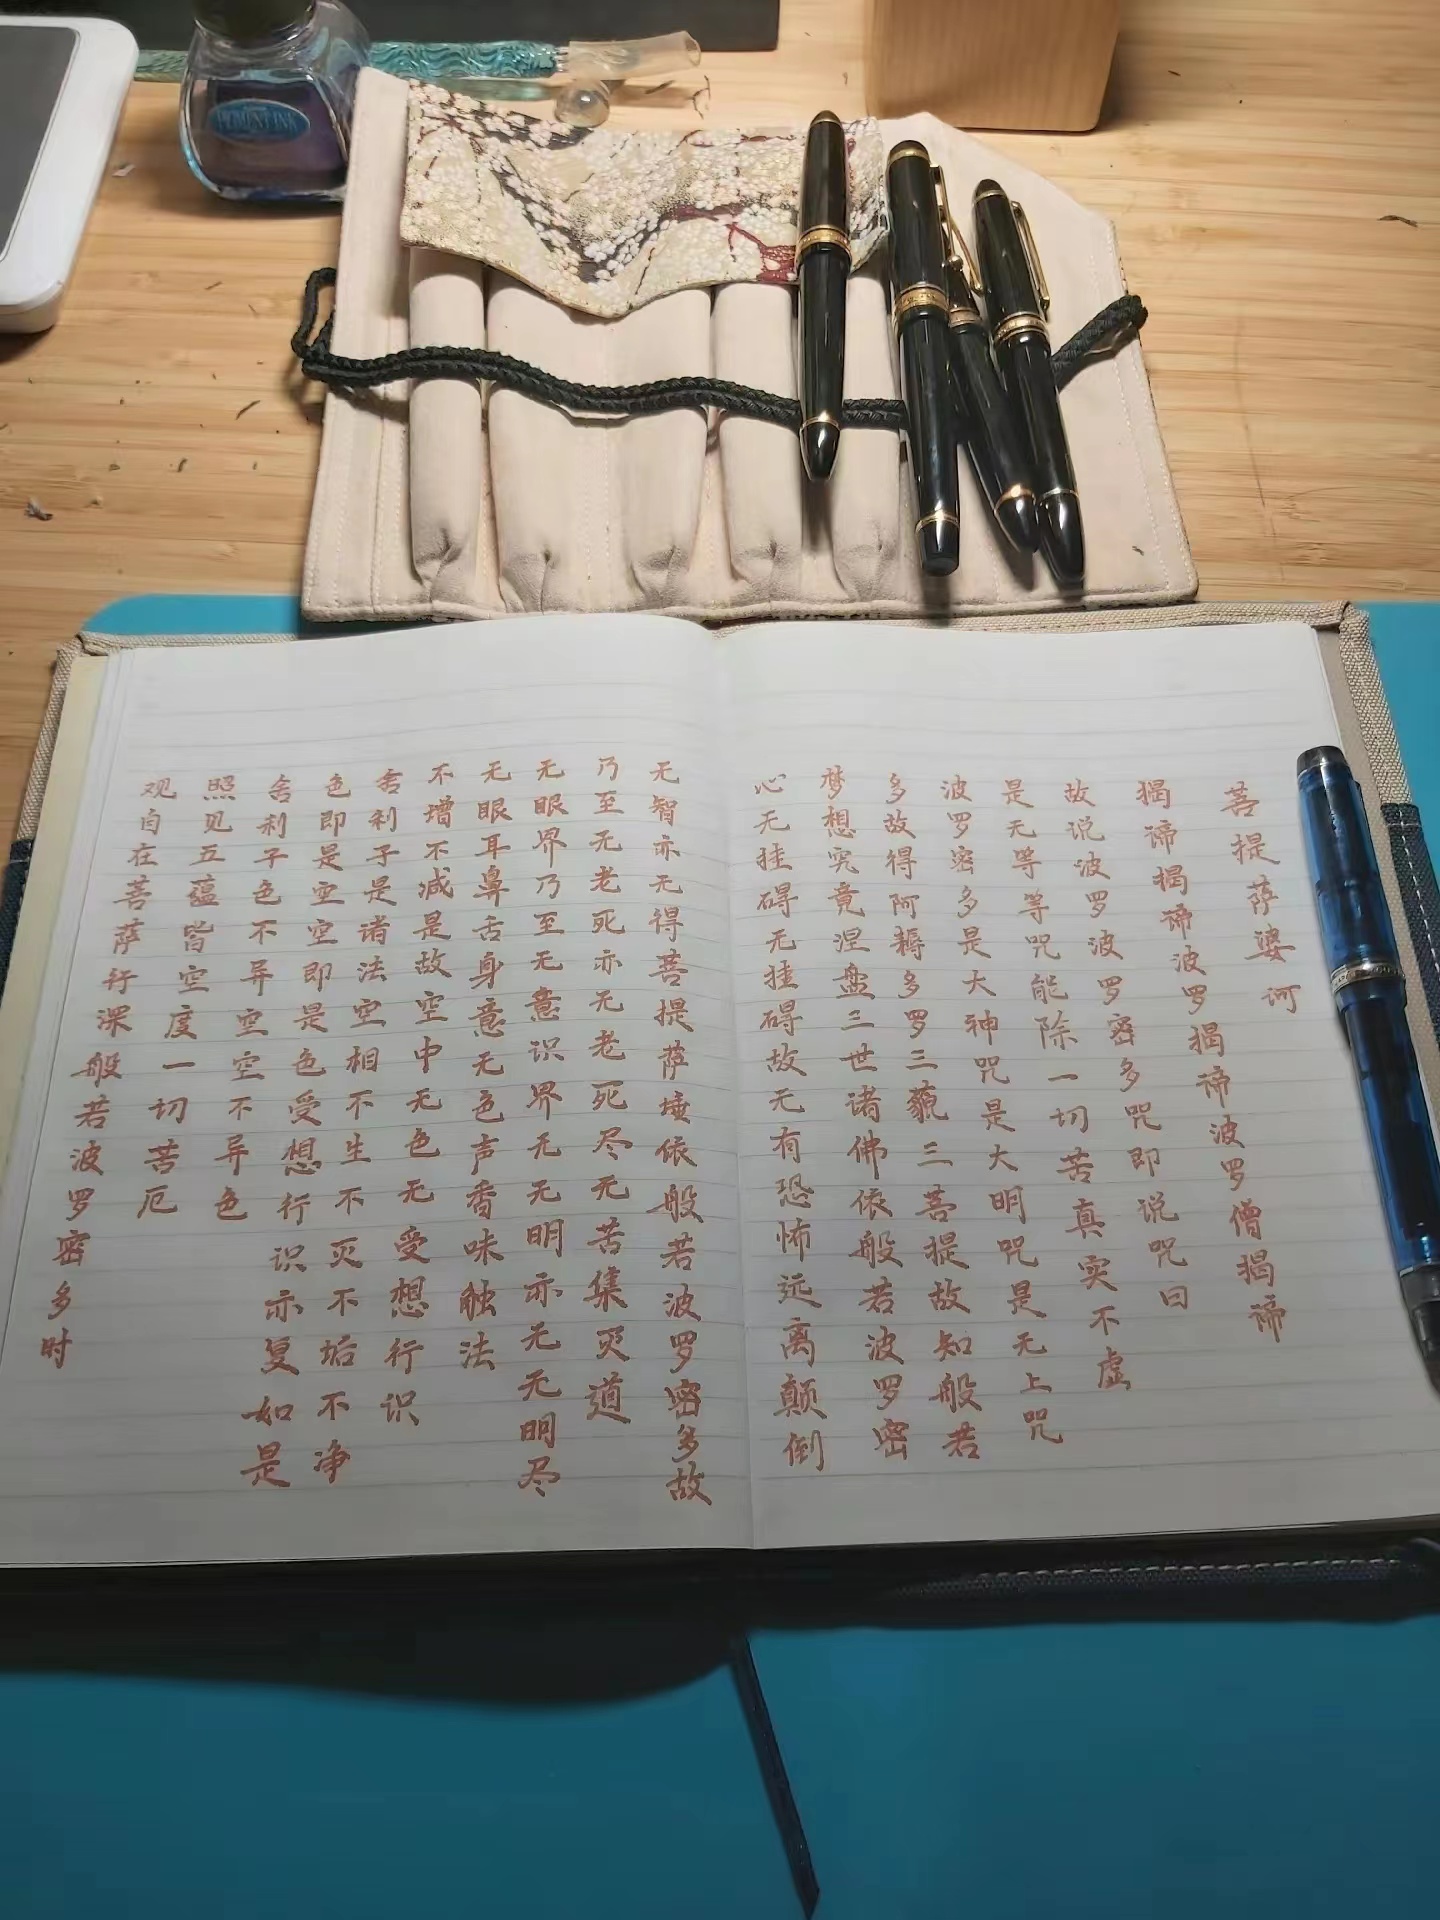 观自在菩萨行深般若波罗密多时
照见五蕴皆空度一切苦厄
舍利子色不异空空不异色
色即是空空即是色受想行识亦复如是
舍利子是诸法空相不生不灭不垢不净
不增不减是故空中无色无受想行识
无眼耳鼻舌身意无色声香味触法
无眼界乃至无意识界无无明亦无无明尽
乃至无老死亦无老死尽无苦集灭道
无智亦无得菩提萨埵依般若波罗密多故
心无挂碍无挂碍故无有恐怖远离颠倒
梦想究竟涅盘三世诸佛依般若波罗密
多故得阿耨多罗三藐三菩提故知般若
波罗密多是大神咒是大明咒是无上咒
是无等等咒能除一切苦真实不虚
故说波罗波罗密多咒即说咒曰
揭谛揭谛波罗揭谛波罗僧揭谛
菩提萨婆诃